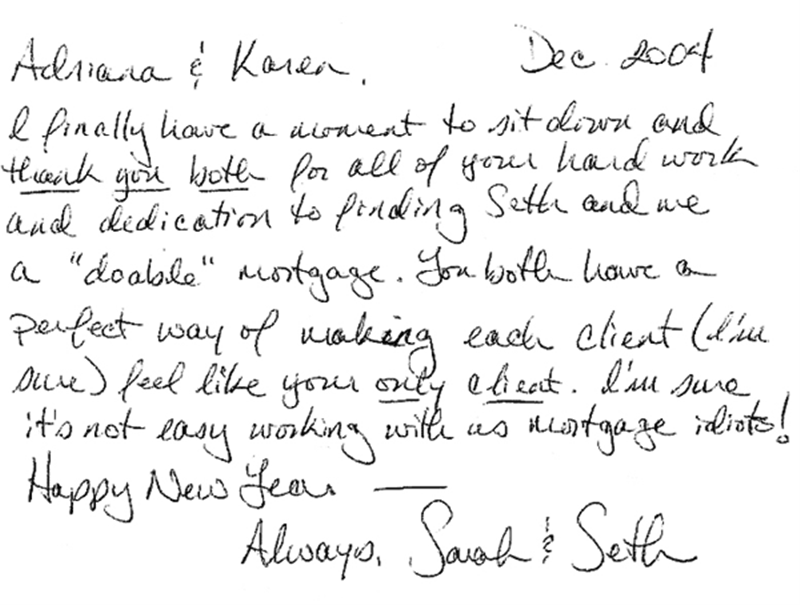 Adriana & Karen,
Dec. 2004
I finally have a moment to sit down and
thank you both for all of your hard work
and dedication to finding Seth and me
a "doable" mortgage. You both have a
perfect way of making each client (I'm
sure) feel like your only client. I'm sure
it's not easy working with us mortgage idiots!
Happy New Year —
Always, Sarah & Seth